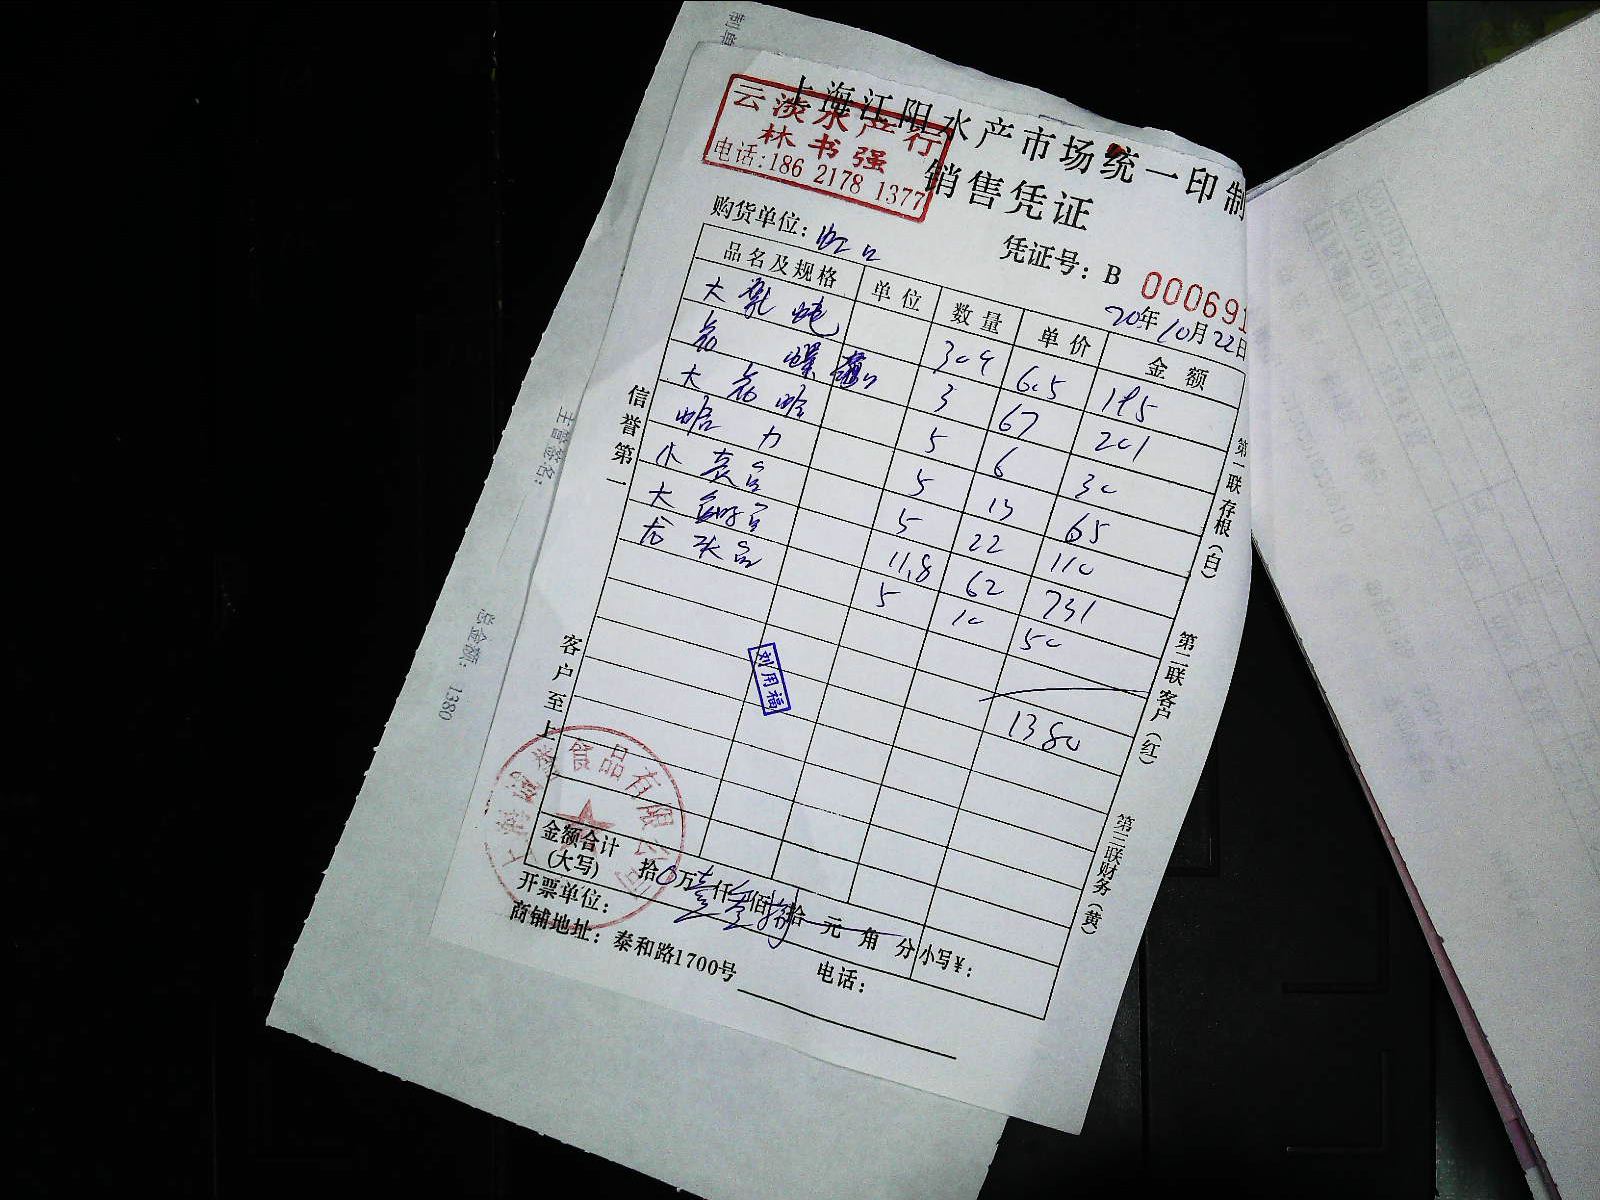 上海江阳水产市场统一印制
云淡水产行
林书强
电话:186 2178 1377
销售凭证
购货单位: 虹口
凭证号: B 000691
20年10月22日
品名及规格 单位 数量 单价 金额
大 6.5 195
花螺 3 67 201
大花蛤 5 6 30
蛤力 5 13 65
小 5 22 110
大 11.8 62 731
5 10 50
1380
刘用福
信誉第一
客户至上
第一联存根(白)
第二联客户(红)
第三联财务(黄)
食品有限公司
金额合计
(大写) 拾0万壹仟叁佰捌拾元角分 小写¥:
开票单位:
商铺地址: 泰和路1700号 电话:
制单
主管签名:
总金额: 1380